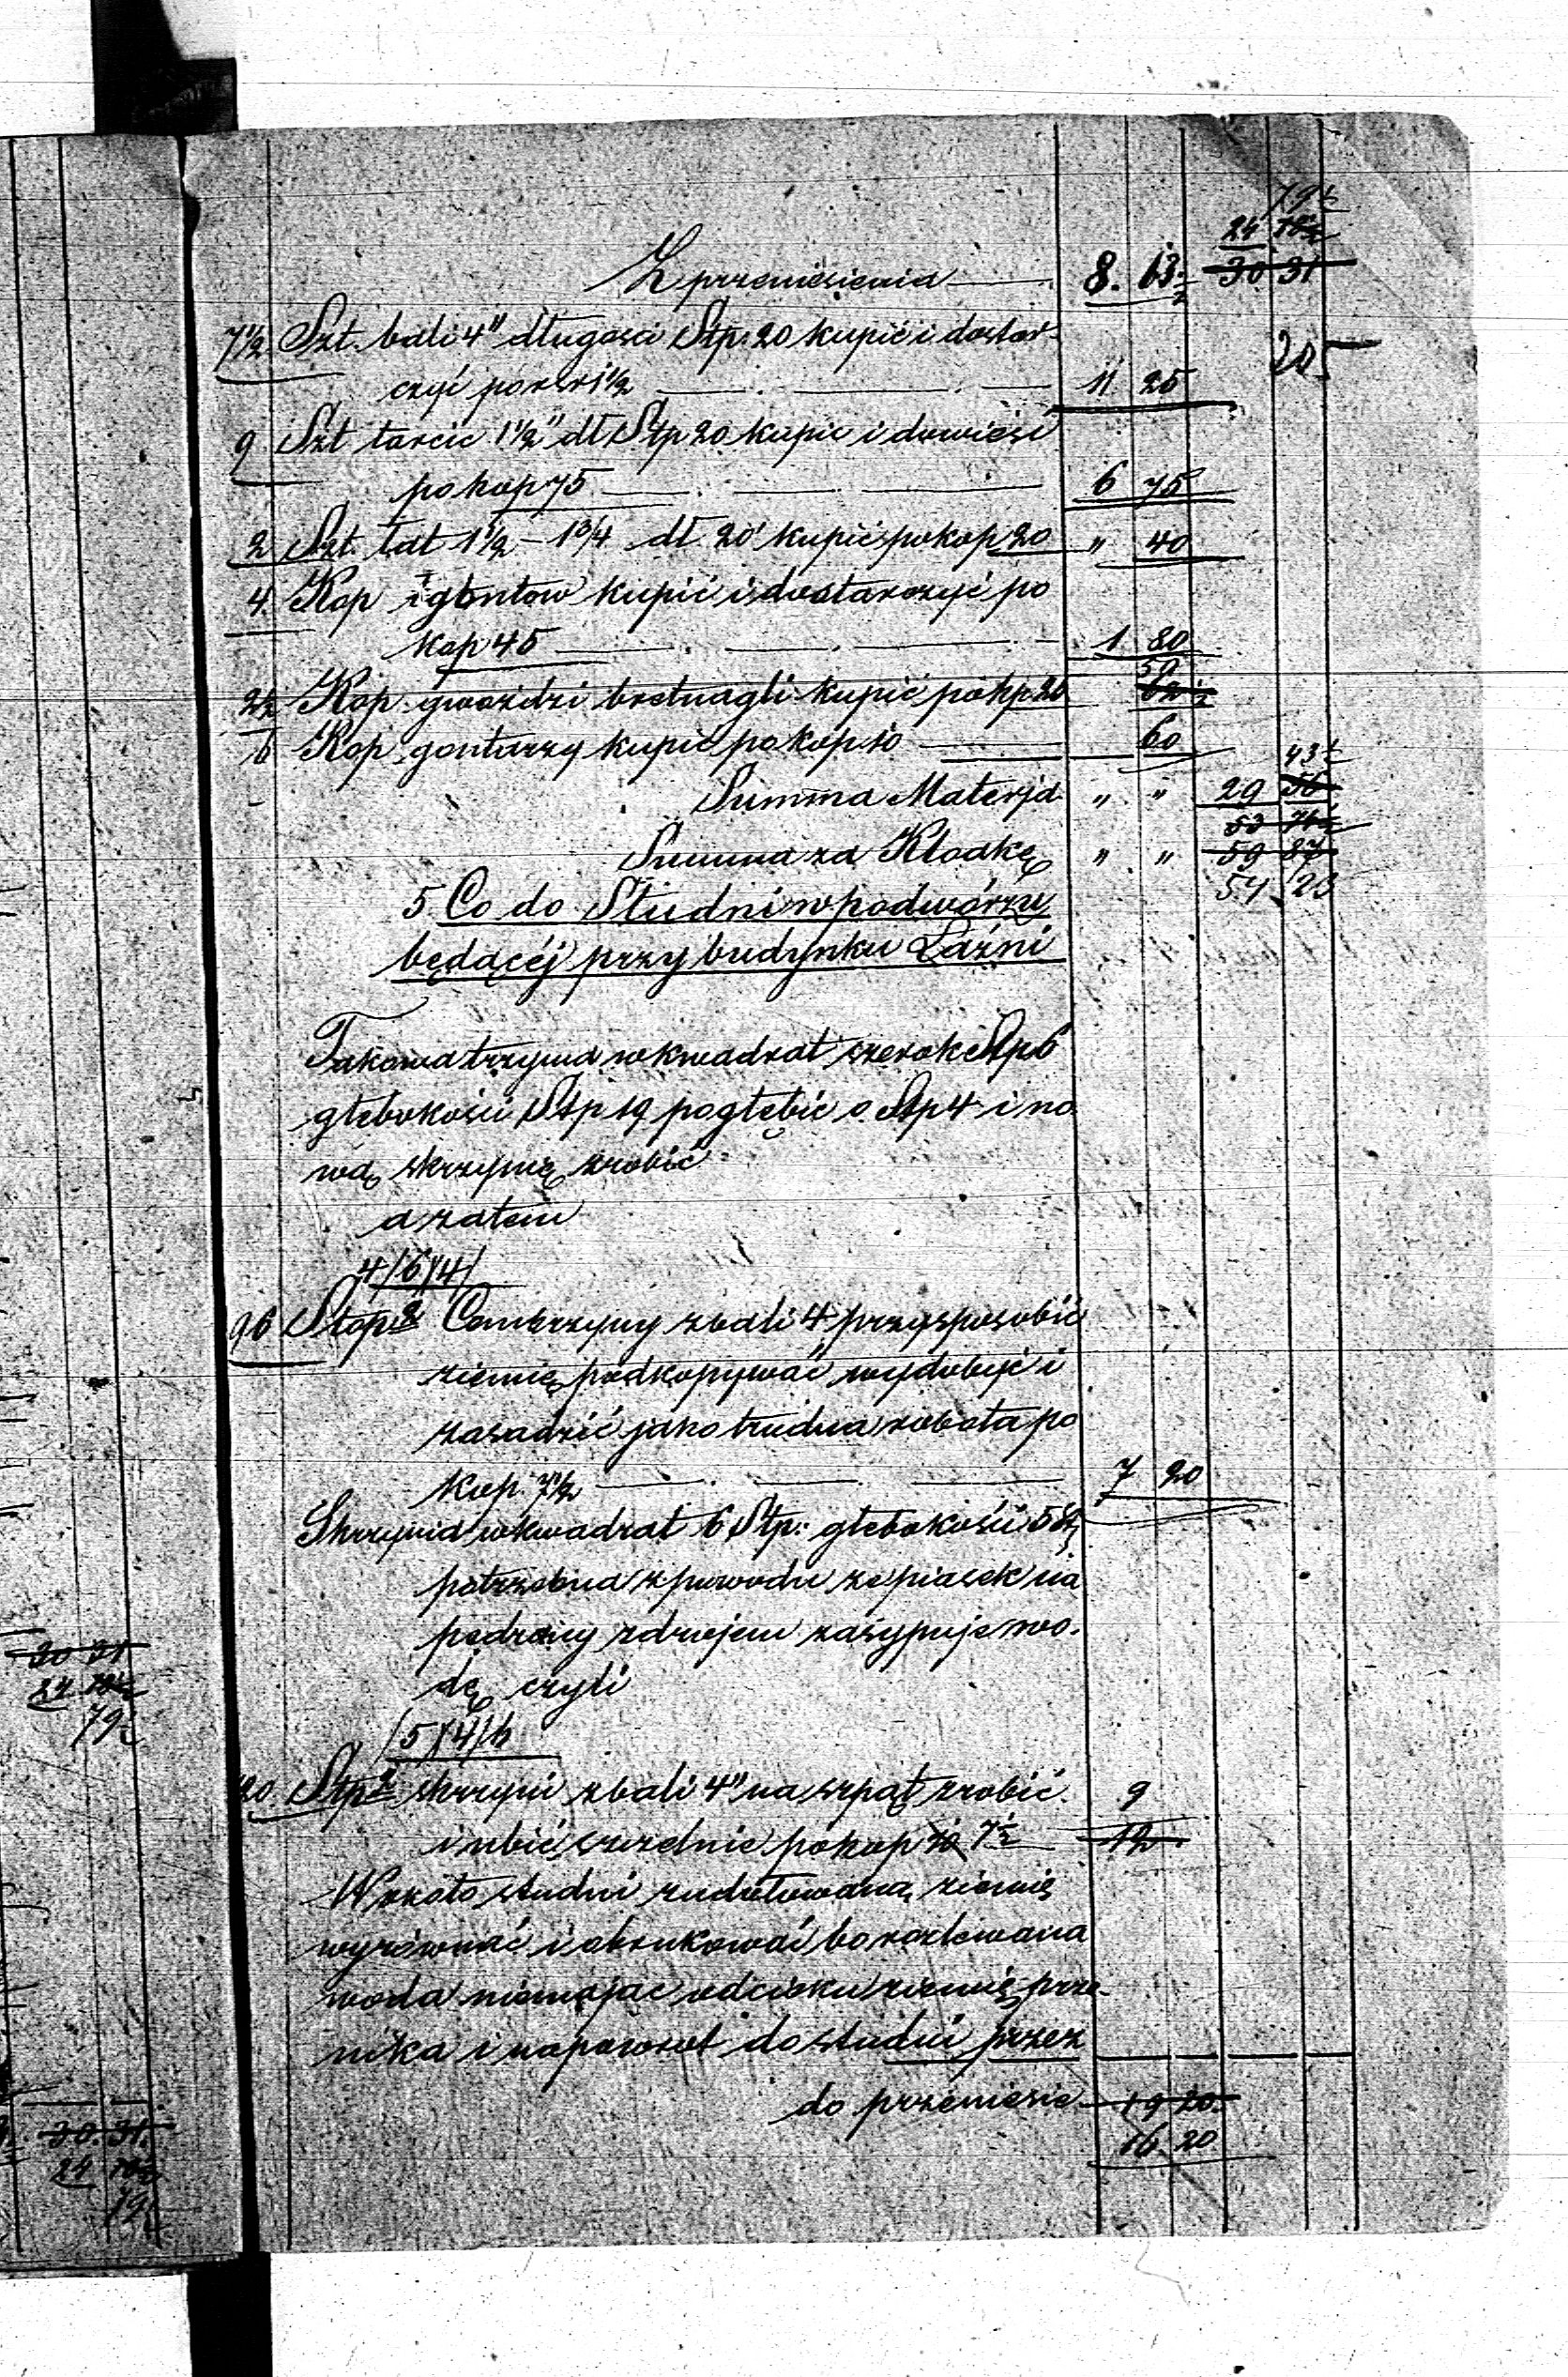 79½
24 78½
Z przeniesienia 8. 13½ 30 31
7½ Szt. bali 4" długości Stp. 20 kupić i dostar-
czyć po rsr 1½ 11 25
9 Szt tarcic 1½" dł Stp 20 kupić i dowieść
po kop 75 6 75
2 Szt. łat 1½ – 1¾ dł. 20' kupić po kop 20 " 40
4 Kop gontow kupić i dostarczyć po
kop 45 1 80
50
2½ Kop gwozdzi bretnagli kupić po kp 20 62½
6 Kop gontarzy kupić po kop 10 60
43½
Summa Materja " " 29 56
53 71½
Summa za Kłodkę " " 59 87
54 23
5 Co do Studni w podwórzu
będącéj przy budynku Łaźni
Takowa trzyma w kwadrat szerok Stp 6
głebokości Stp 19 pogłębić o Stp 4 i no
wą skrzynię zrobić
a zatem
4/6/4/
96 Stop 2 Cembrzyny z bali 4" przysposobić
ziemię podkopywać wydobyć i
zasadzić jako trudna robota po
kop. 7½ 7 20
Skrzynia w kwadrat 6 Stp: głebokości 5 St
potrzebna z powodu że piasek na
pędzony zdrojem zasypuje wo-
dę czyli
/5/4/6
120 Stp 2 skrzyni z bali 4" na szpąt zrobić 9
i ubić szczelnie po kop 10 7½ 12
W około studni zudłtowaną ziemię
wyrównać i obrukować bo rozlewana
woda niemając odcieku ziemię prze-
nika i napowrot do studni przez
do przeniesie 19 20
16 20
30 31
24 78½
79½
30. 31.
24 78½
79½